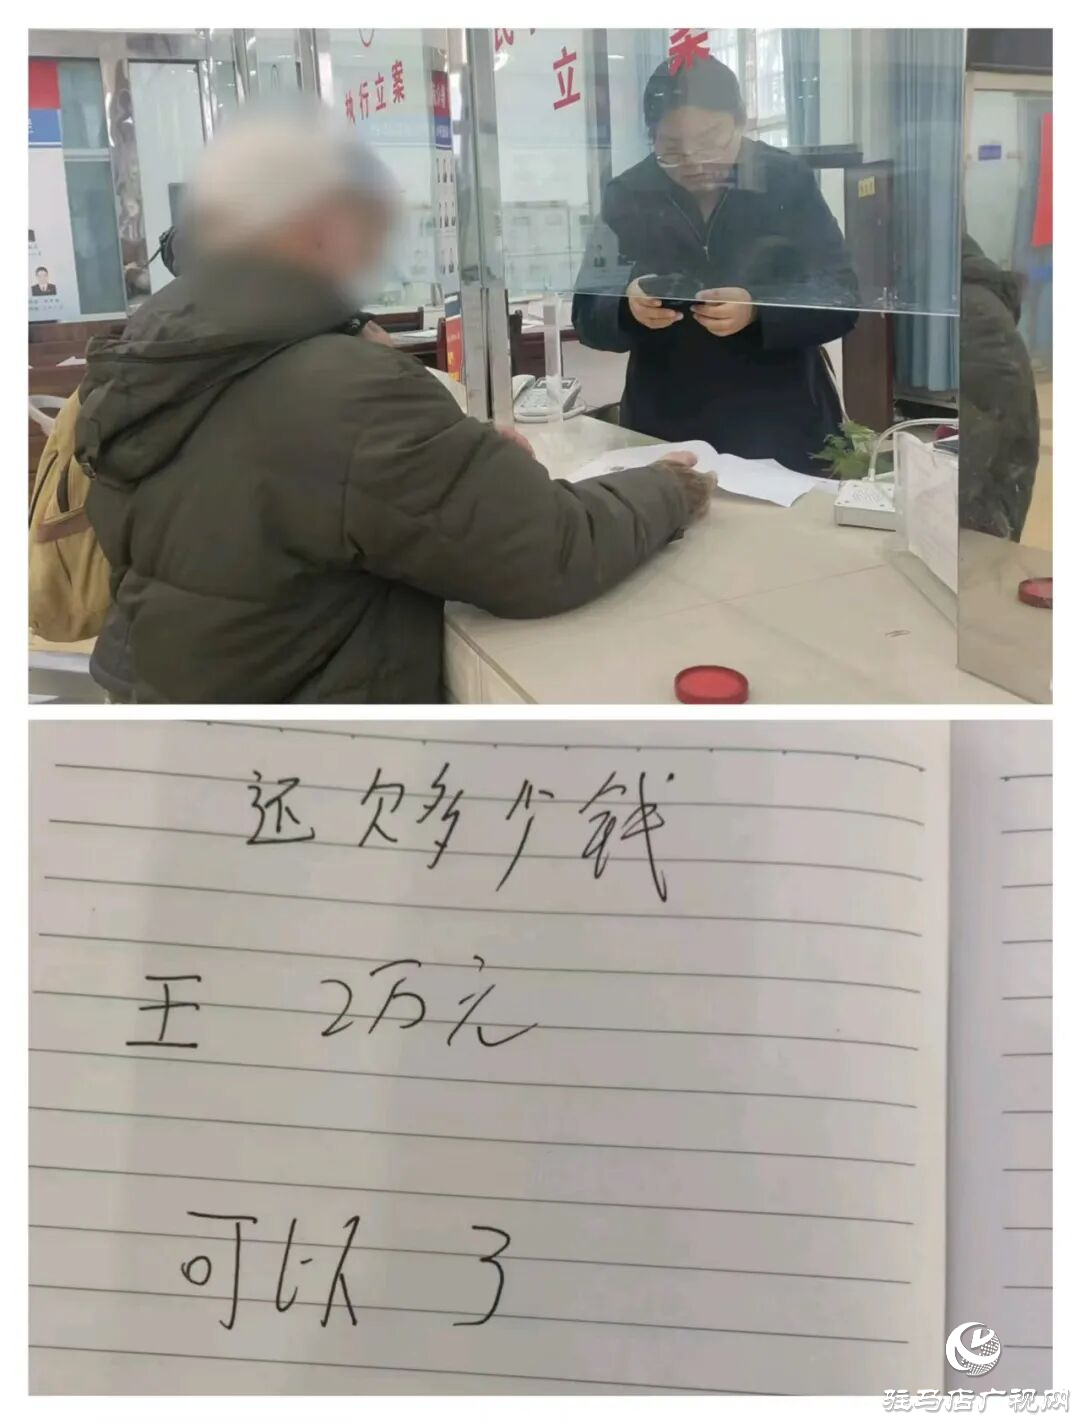 执行立案
立 案
还欠多少钱
王 2万元
可以了
驻马店广视网